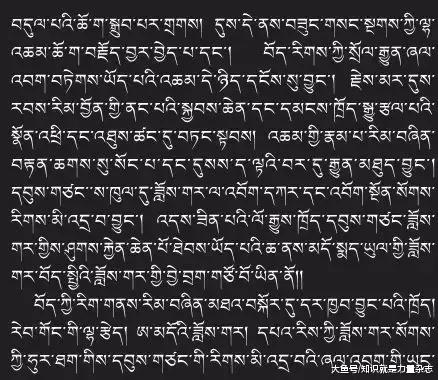 བདུལ་པའི་ཆོ་ག་སྒྲུབ་པར་གྲགས། དུས་དེ་ནས་བཟུང་གསང་སྔགས་ཀྱི་ལྷ་
འཆམ་ཆོ་ག་བརྗོད་བྱར་བྱེད་པ་དང་། བོད་རིགས་ཀྱི་སྲོལ་རྒྱུན་ཞལ་
འབག་བཏེགས་ཡོད་པའི་འཆམ་དེ་ཉིད་དངོས་སུ་བྱུང་། རྗེས་མར་དུས་
རབས་རིམ་བྱོན་གྱི་ནང་པའི་སྐྱབས་ཆེན་དང་དམངས་ཁྲོད་སྒྱུ་རྩལ་པའི་
སྣོན་འཕྲི་དང་འཐུས་ཚང་དུ་བཏང་སྟབས། འཆམ་གྱི་རྣམ་པ་རིམ་བཞིན་
བརྟན་ཆགས་སུ་སོང་པ་དང་དུསས་ད་ལྟའི་བར་དུ་རྒྱུན་མཐུད་བྱུང་།
དབུས་གཙང་ས་ཁུལ་དུ་ཟློས་གར་ལ་འབོག་དཀར་དང་འབོག་སྔོན་སོགས་
རིགས་མི་འདྲ་བ་བྱུང་། འདས་ཟིན་པའི་ལོ་རྒྱུས་ཁྲོད་དབུས་གཙང་ཟློས་
གར་གྱིས་ཤུགས་རྐྱེན་ཆེན་པོ་ཐེབས་ཡོད་པའི་ཆ་ནས་མདོ་སྨད་ཡུལ་གྱི་ཟློས་
གར་བོད་སྤྱིའི་ཟློས་གར་གྱི་བྱེ་བྲག་གཙོ་བོ་ཡིན་ནོ།།
བོད་ཀྱི་རིག་གནས་རིམ་བཞིན་མཐའ་བསྐོར་དུ་དར་ཁྱབ་བྱུང་པའི་ཁྲོད།
རེབ་གོང་གི་ལྷ་རྩེད། ཨ་མདོའི་ཟློས་གར། དཔའ་རིས་ཀྱི་ཟློས་གར་སོགས་
ཀྱི་ཧུར་ཐག་གིས་དབུས་གཙང་གི་རིགས་མི་འདྲ་བའི་ཞལ་འབག་གི་ཡང་
大鱼号/知识就是力量杂志